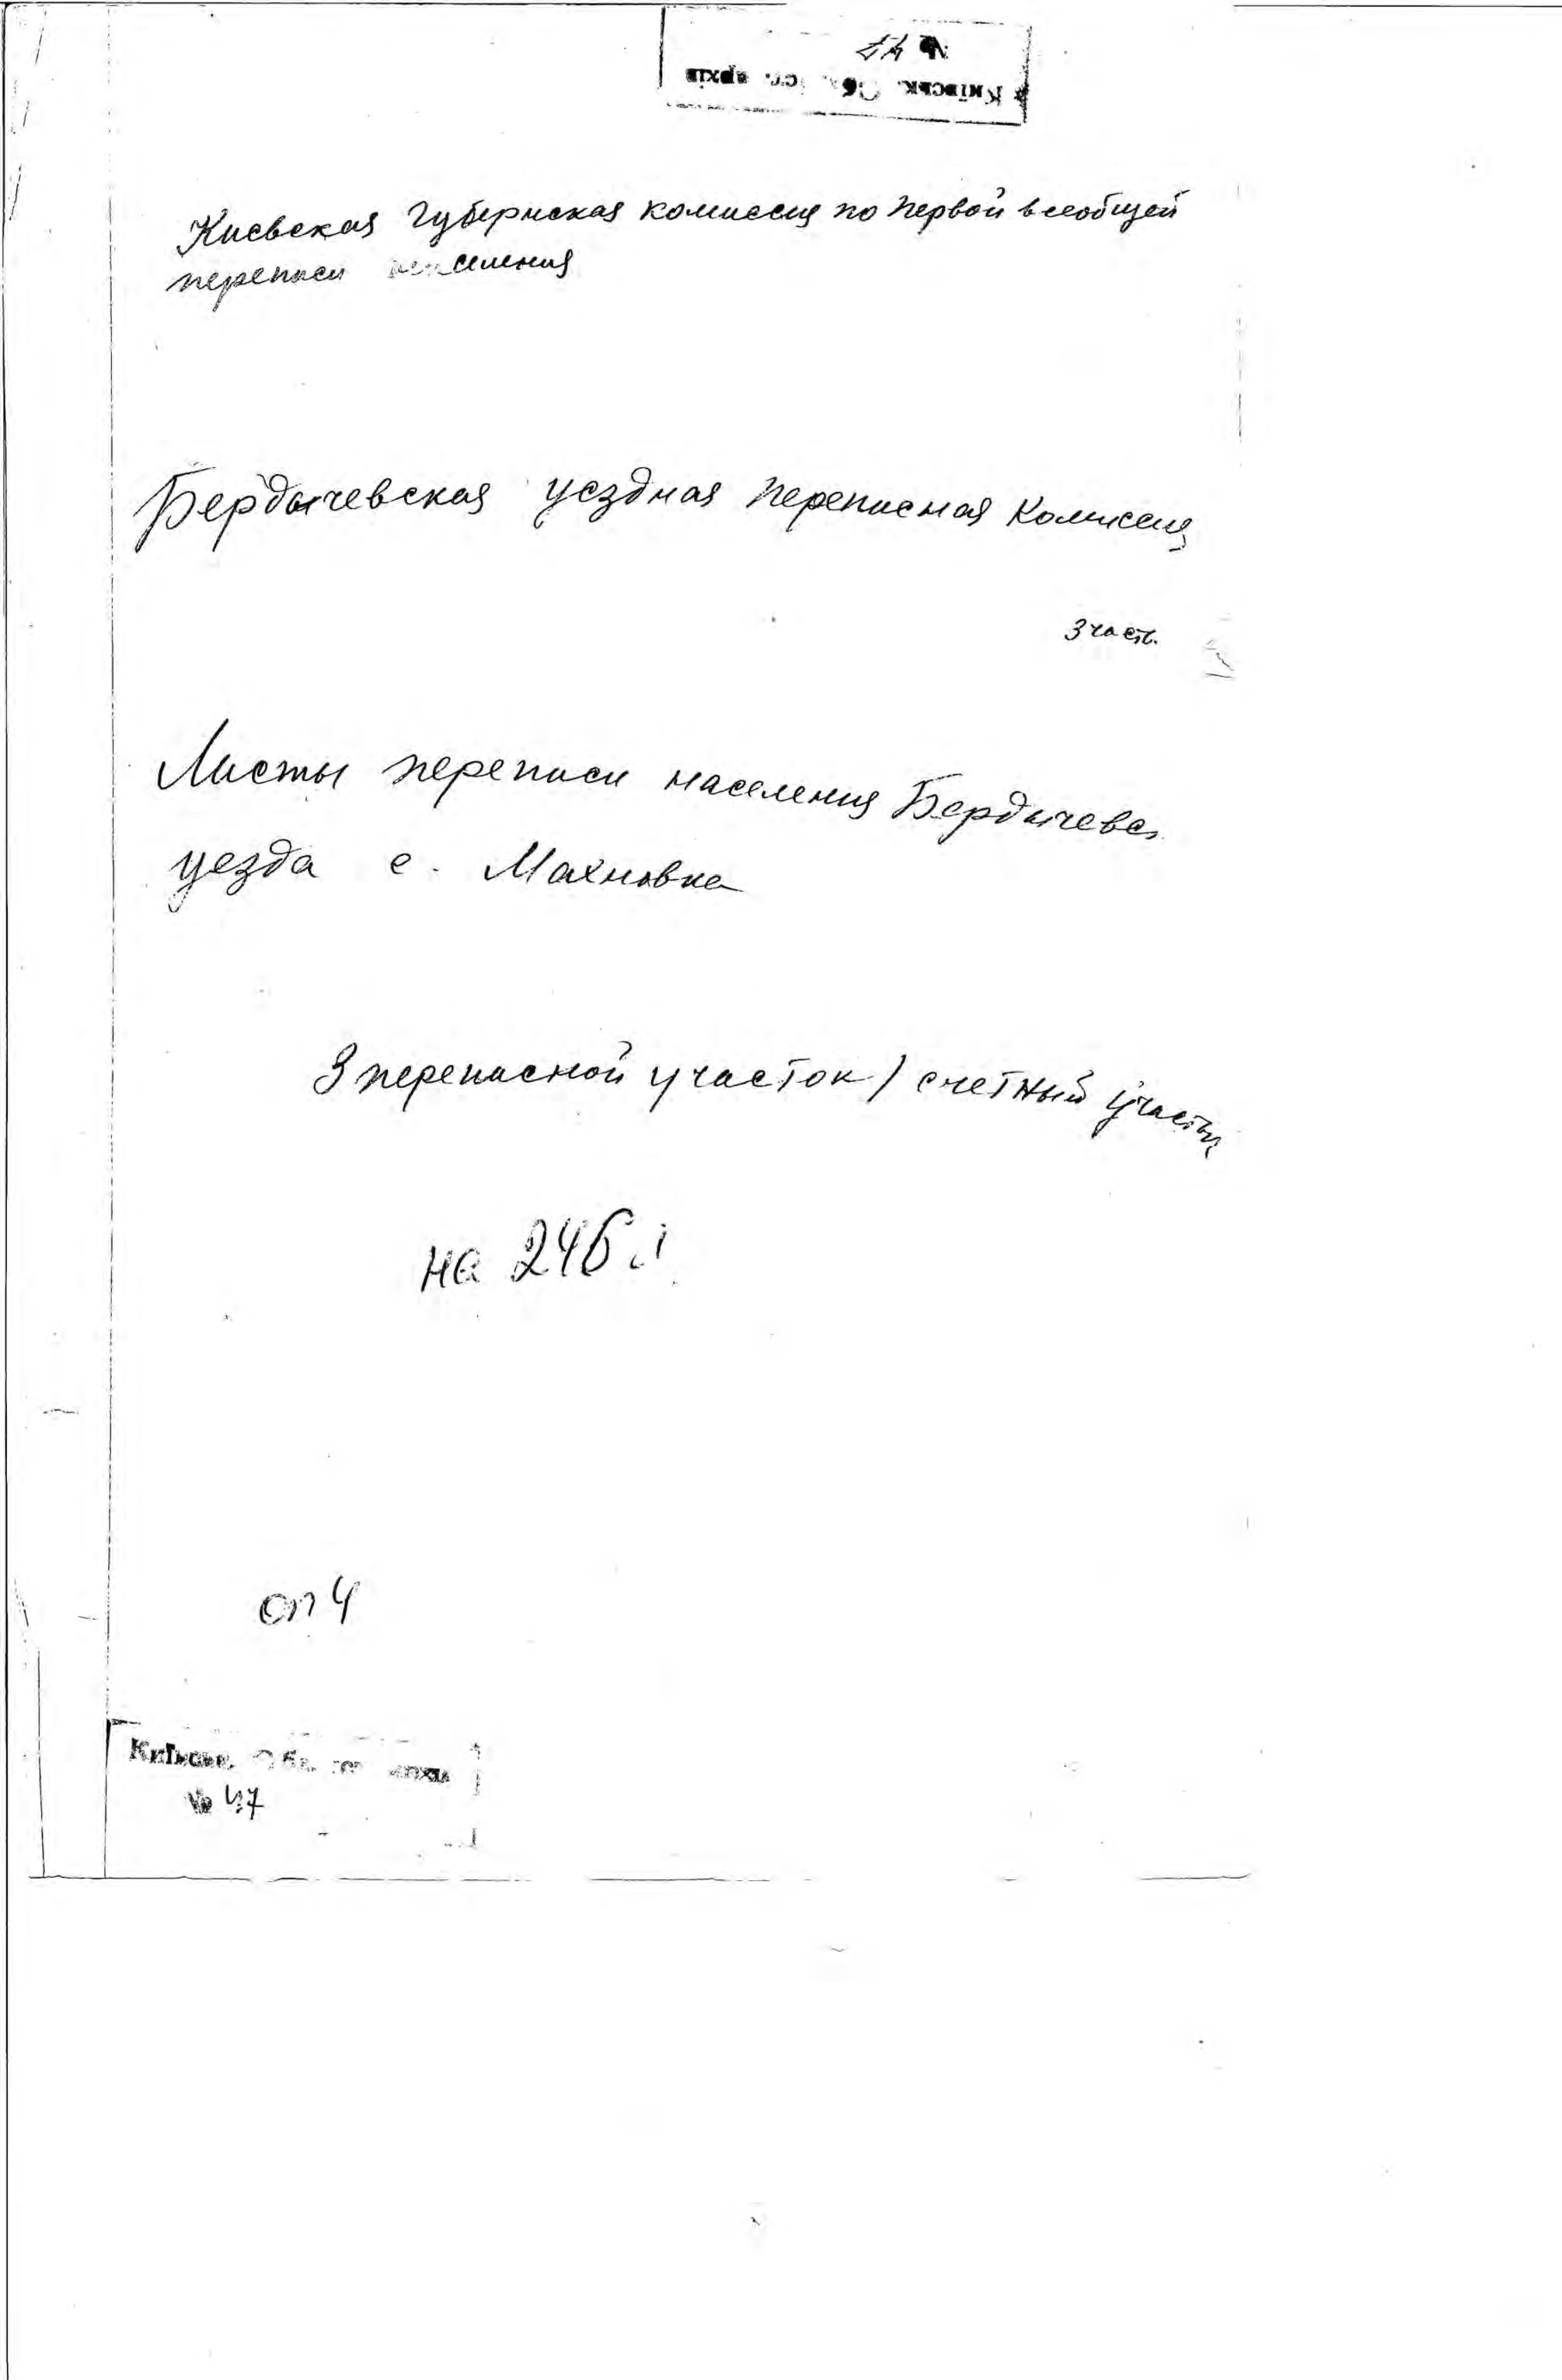 № 47
Київськ. Обл. арxів
Киевская Губернская комиссия по первой всеобщей
переписи населения
Бердычевская уездная переписная комиссия
3 част.
Листы переписи населения Бердычевс.
уезда с. Махновка
3 переписной участок / счетный участок
на 246 л
оп 4
Київськ. Обл.
№ 47